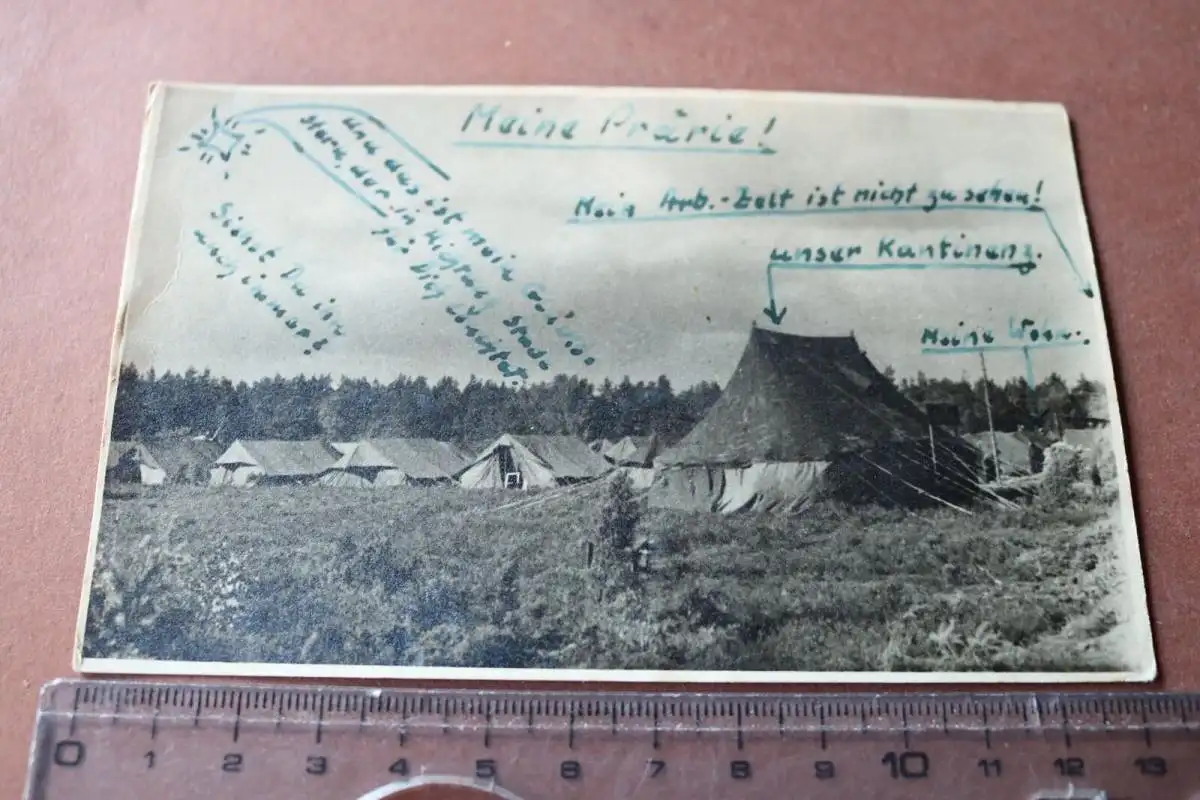 Meine Prärie!
Mein Arb.-Zelt ist nicht zu sehen!
unser Kantinenz.
Meine Wohn.
und das ist mein
Stern, der in
Siehst Du ihn
auch immer?
0 1 2 3 4 5 6 7 8 9 10 11 12 13